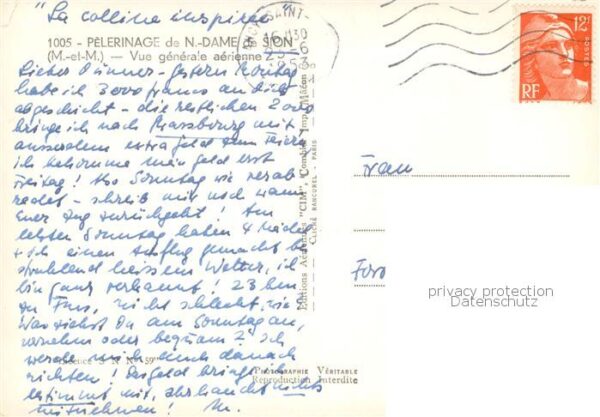 "La colline inspirée"
1005 - PÈLERINAGE de N.-DAME de SION
(M.-et-M.) — Vue générale aérienne
Lieber Männer - gestern Montag
habe ich 3000 francs an dich
abgeschickt - die restlichen 2000
bringe ich nach Strassbourg mit
ausserdem extra Geld zum Feiern
ich bekomme mein Geld erst
Freitag! Also Sonntag wie verab
redet - schreib mir noch wann
Euer Zug zurückgeht! Am
letzten Sonntag haben 4 Mädels
+ ich einen Ausflug gemacht bei
strahlend heissem Wetter, ich
bin ganz verbrannt! 23 km
zu Fuss, nicht schlecht, wie?
Was ziehst Du am Sonntag an,
vornehm oder bequem? Ich
werde mich auch danach
richten! Das Geld bringe ich
bestimmt mit,
mitnehmen! M.
Licence S N N° 59
Editions Aériennes "CIM", Combier Imp. Mâcon
CLICHÉ RANCUREL - PARIS
PHOTOGRAPHIE VÉRITABLE
Reproduction Interdite
SAINT-
16 H30
23-6
12F
POSTES
RF
Frau
privacy protection
Datenschutz